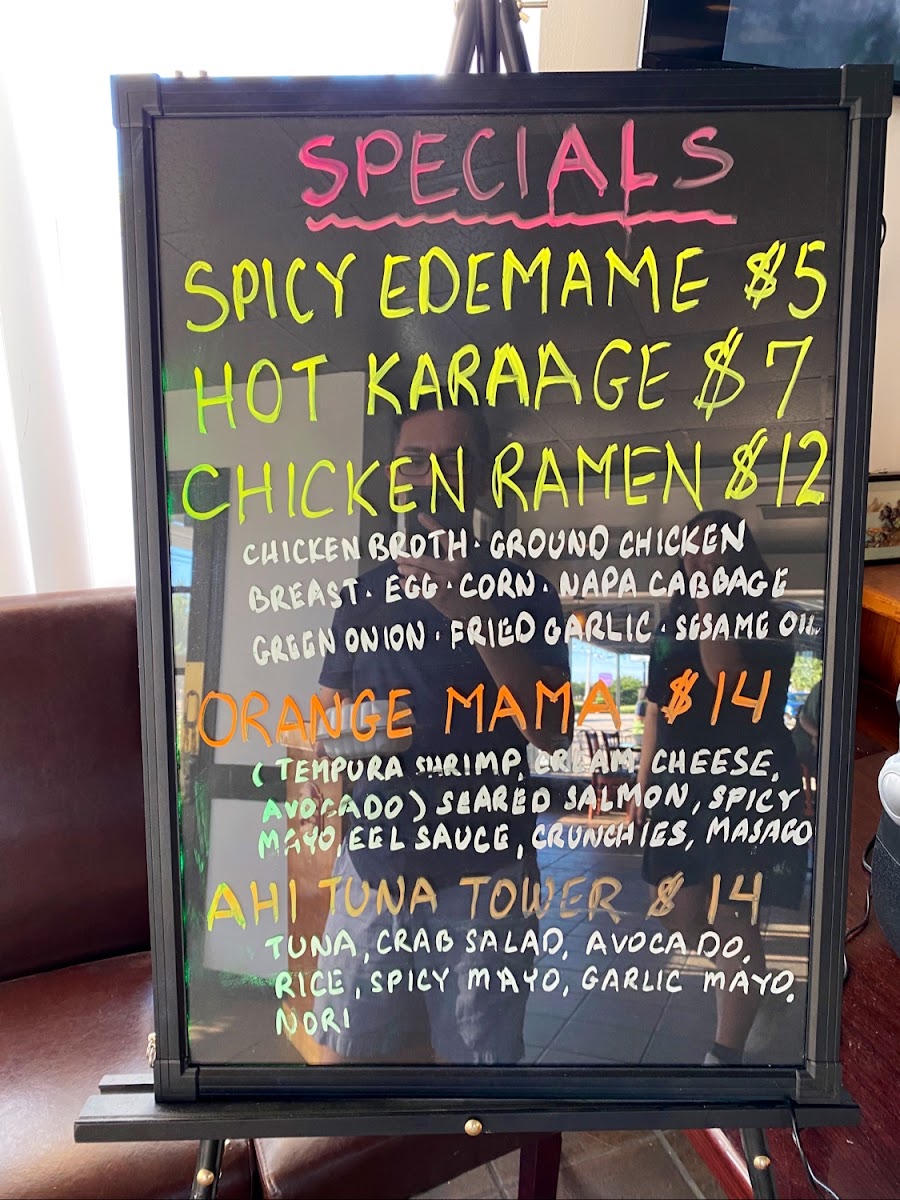 SPECIALS
SPICY EDEMAME $5
HOT KARAAGE $7
CHICKEN RAMEN $12
CHICKEN BROTH · GROUND CHICKEN
BREAST · EGG · CORN · NAPA CABBAGE
GREEN ONION · FRIED GARLIC · SESAME OIL
ORANGE MAMA $14
( TEMPURA SHRIMP, CREAM CHEESE,
AVOCADO ) SEARED SALMON, SPICY
MAYO, EEL SAUCE, CRUNCHIES, MASAGO
AHI TUNA TOWER $14
TUNA, CRAB SALAD, AVOCADO,
RICE, SPICY MAYO, GARLIC MAYO,
NORI